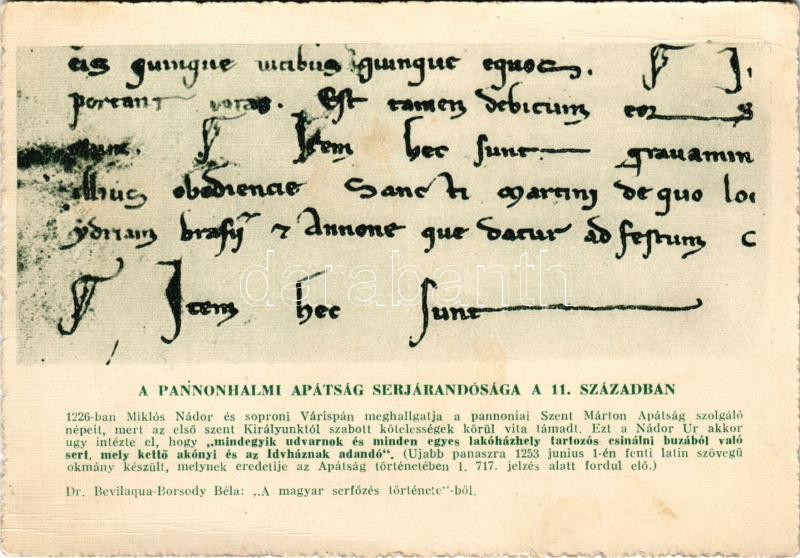 eis quinque vicibus quinque equos.
portant voias. Est tamen debitum eor s
Item hec sunt gravamin
illius obediencie Sancti Martini de quo loc
ydriam brasij Annone que datur ad festum
Item hec sunt
darabanth
A PANNONHALMI APÁTSÁG SERJÁRANDÓSÁGA A 11. SZÁZADBAN
1226-ban Miklós Nádor és soproni Várispán meghallgatja a pannoniai Szent Márton Apátság szolgáló
népeit, mert az első szent Királyunktól szabott kötelességek körül vita támadt. Ezt a Nádor Ur akkor
ugy intézte el, hogy „mindegyik udvarnok és minden egyes lakóházhely tartozós csinálni buzából való
sert, mely kettő akónyi és az Idvháznak adandó“. (Ujabb panaszra 1253 junius 1-én fenti latin szövegű
okmány készült, melynek eredetije az Apátság történetében I. 717. jelzés alatt fordul elő.)
Dr. Bevilaqua-Borsody Béla: „A magyar serfőzés története“-ből.